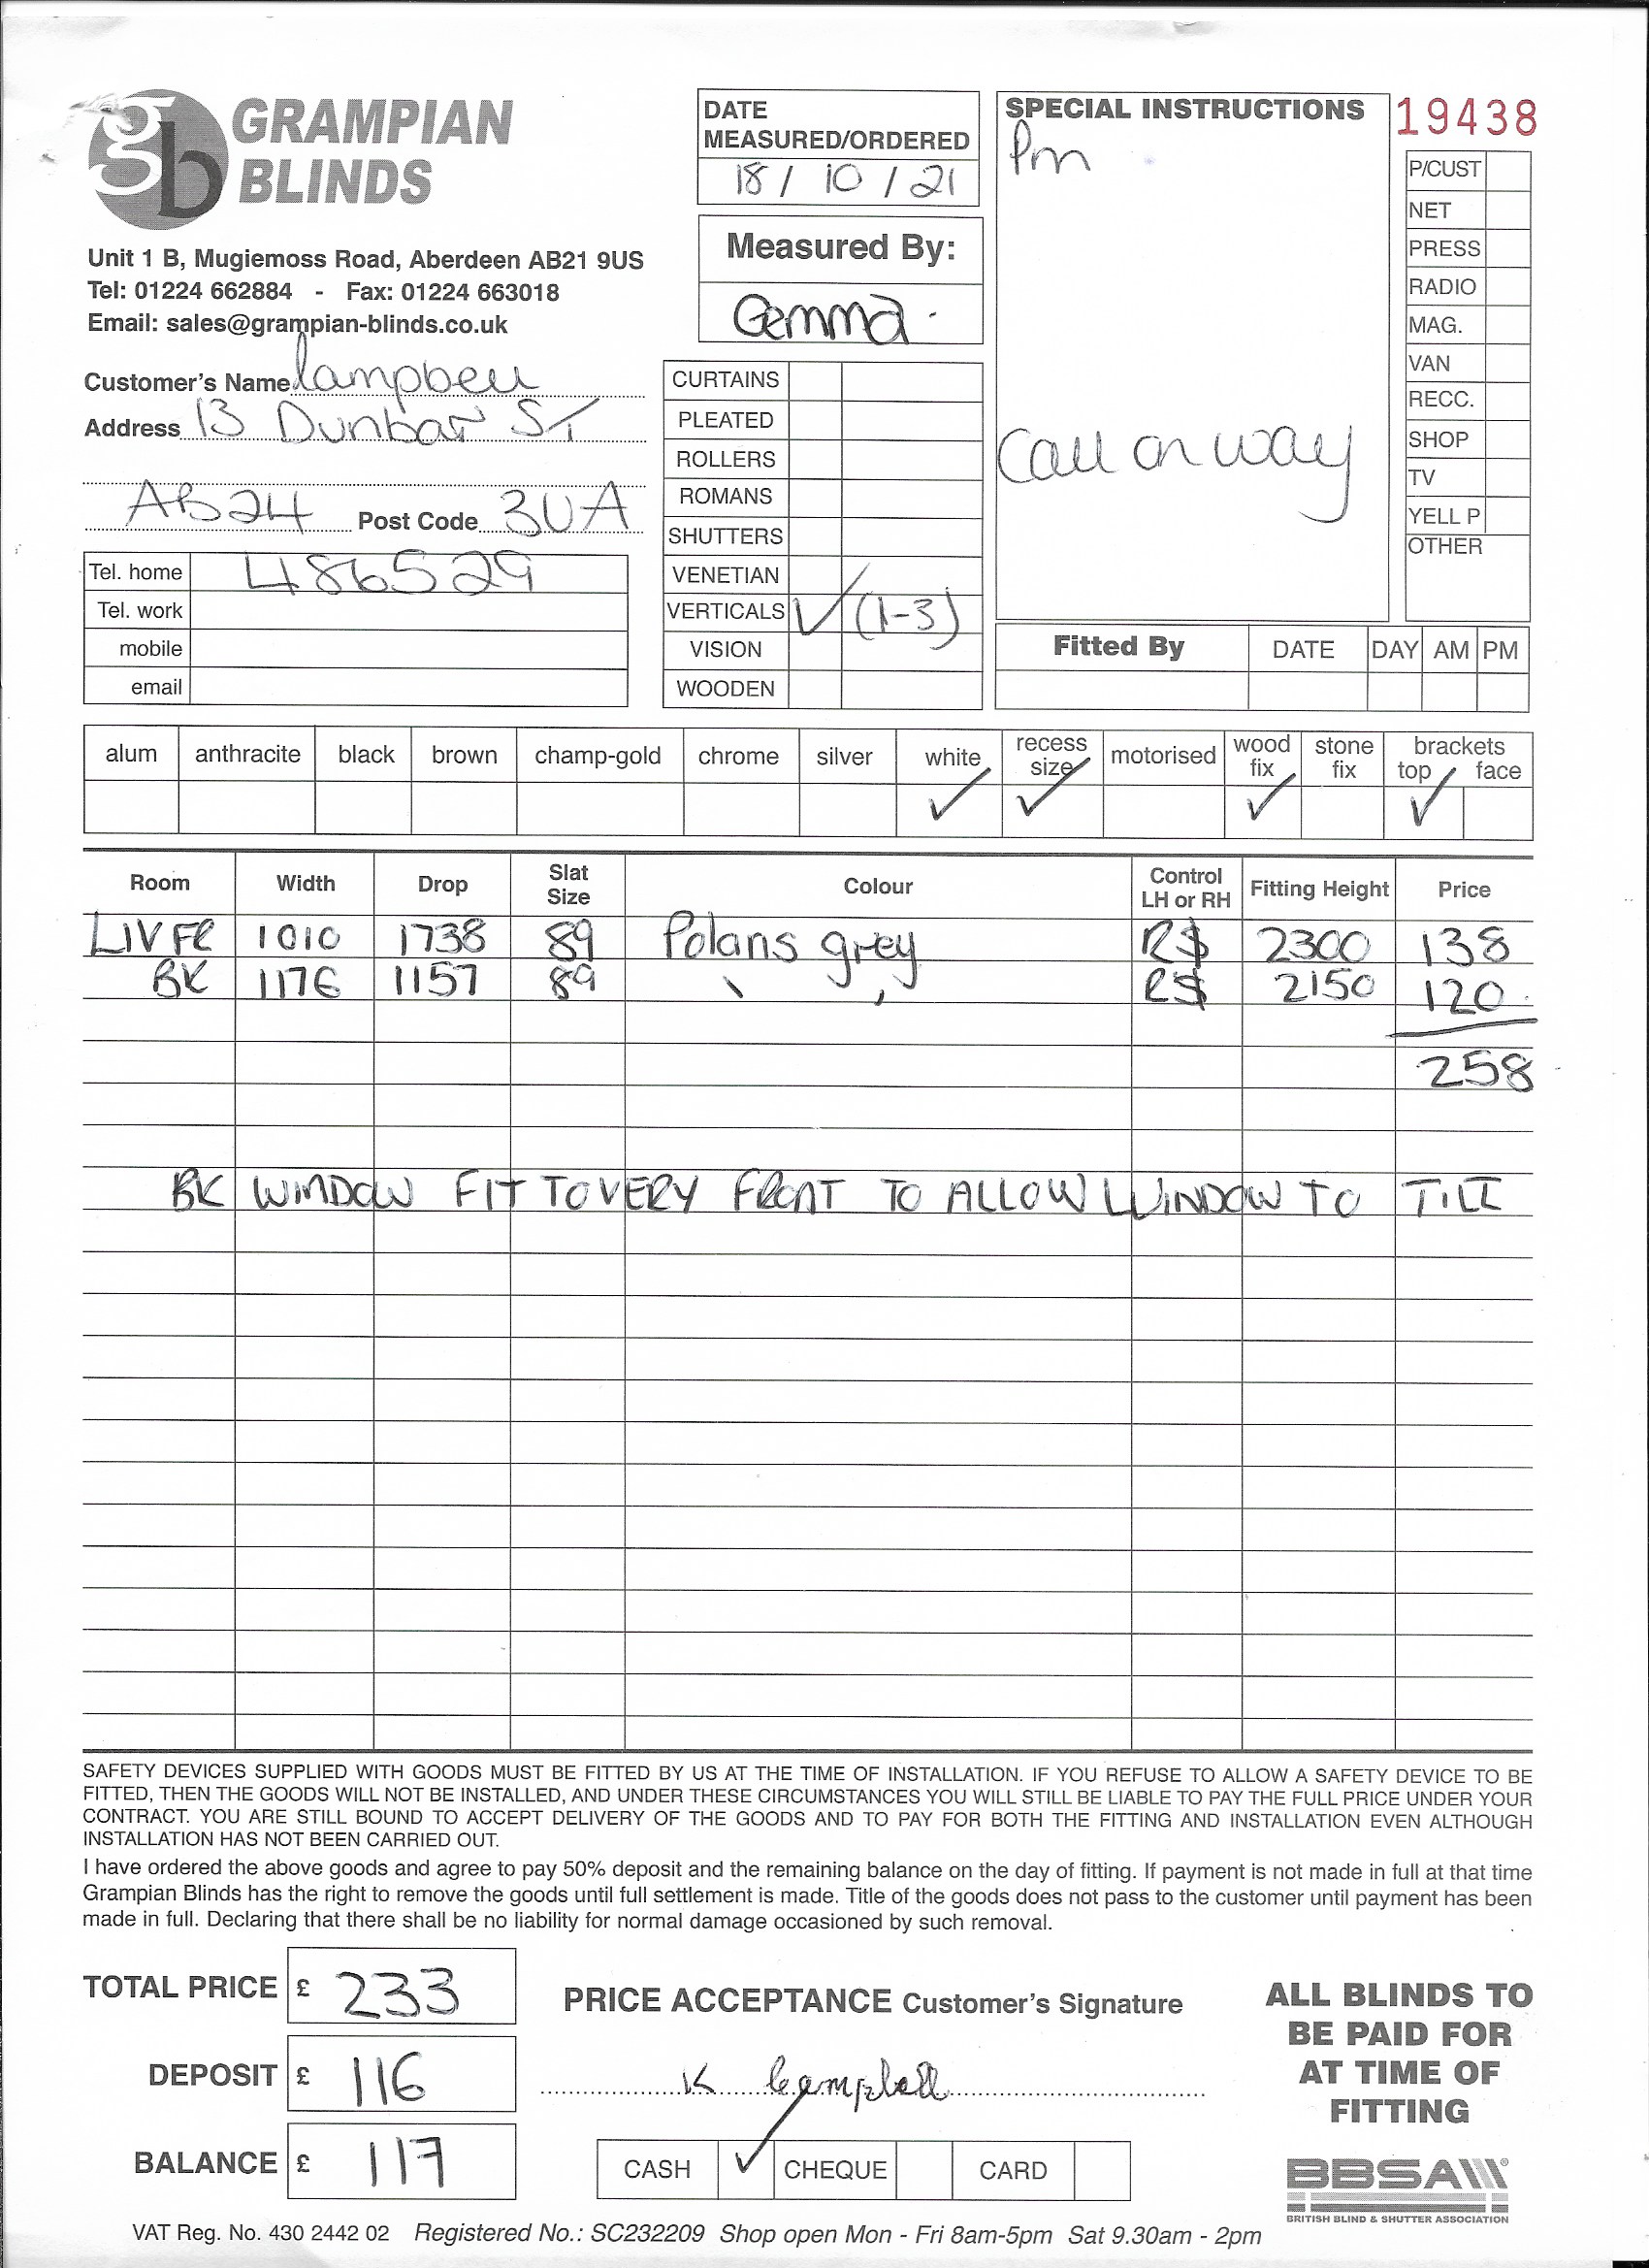 gb GRAMPIAN BLINDS
Unit 1 B, Mugiemoss Road, Aberdeen AB21 9US
Tel: 01224 662884 - Fax: 01224 663018
Email: sales@grampian-blinds.co.uk
Customer's Name Campbell
Address 13 Dunbar ST
AB24 Post Code 3UA
Tel. home 486529
Tel. work
mobile
email
DATE
MEASURED/ORDERED
18 / 10 / 21
Measured By:
Gemma.
CURTAINS
PLEATED
ROLLERS
ROMANS
SHUTTERS
VENETIAN
VERTICALS ✓ (1-3)
VISION
WOODEN
SPECIAL INSTRUCTIONS
Pm
Call on way
19438
P/CUST
NET
PRESS
RADIO
MAG.
VAN
RECC.
SHOP
TV
YELL P
OTHER
Fitted By DATE DAY AM PM
alum anthracite black brown champ-gold chrome silver white recess size motorised wood fix stone fix brackets top face
✓ ✓ ✓ ✓
Room Width Drop Slat Size Colour Control LH or RH Fitting Height Price
LIV FR 1010 1738 89 Polaris grey R$ 2300 138
BK 1176 1157 89 " R$ 2150 120
258
BK WINDOW FIT TO VERY FRONT TO ALLOW WINDOW TO TILT
SAFETY DEVICES SUPPLIED WITH GOODS MUST BE FITTED BY US AT THE TIME OF INSTALLATION. IF YOU REFUSE TO ALLOW A SAFETY DEVICE TO BE
FITTED, THEN THE GOODS WILL NOT BE INSTALLED, AND UNDER THESE CIRCUMSTANCES YOU WILL STILL BE LIABLE TO PAY THE FULL PRICE UNDER YOUR
CONTRACT. YOU ARE STILL BOUND TO ACCEPT DELIVERY OF THE GOODS AND TO PAY FOR BOTH THE FITTING AND INSTALLATION EVEN ALTHOUGH
INSTALLATION HAS NOT BEEN CARRIED OUT.
I have ordered the above goods and agree to pay 50% deposit and the remaining balance on the day of fitting. If payment is not made in full at that time
Grampian Blinds has the right to remove the goods until full settlement is made. Title of the goods does not pass to the customer until payment has been
made in full. Declaring that there shall be no liability for normal damage occasioned by such removal.
TOTAL PRICE £ 233
DEPOSIT £ 116
BALANCE £ 117
PRICE ACCEPTANCE Customer's Signature
K Campbell
CASH ✓ CHEQUE CARD
ALL BLINDS TO
BE PAID FOR
AT TIME OF
FITTING
BBSA
BRITISH BLIND & SHUTTER ASSOCIATION
VAT Reg. No. 430 2442 02 Registered No.: SC232209 Shop open Mon - Fri 8am-5pm Sat 9.30am - 2pm